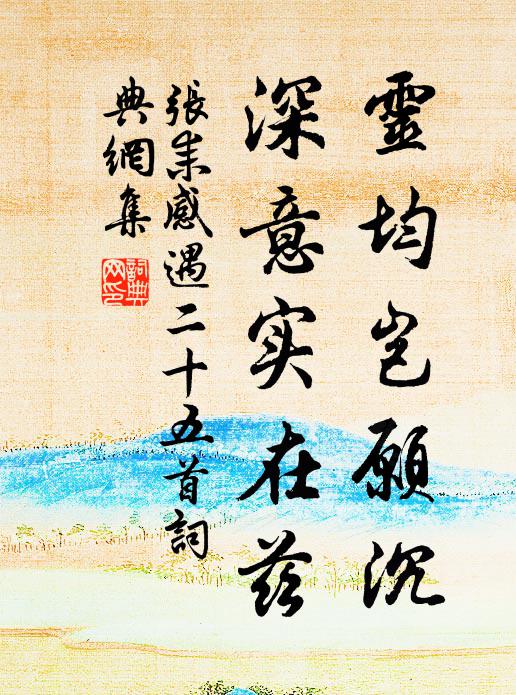 靈均岂願沉
深意实在茲
張耒感遇二十五首詞
典網集
詞典
网印